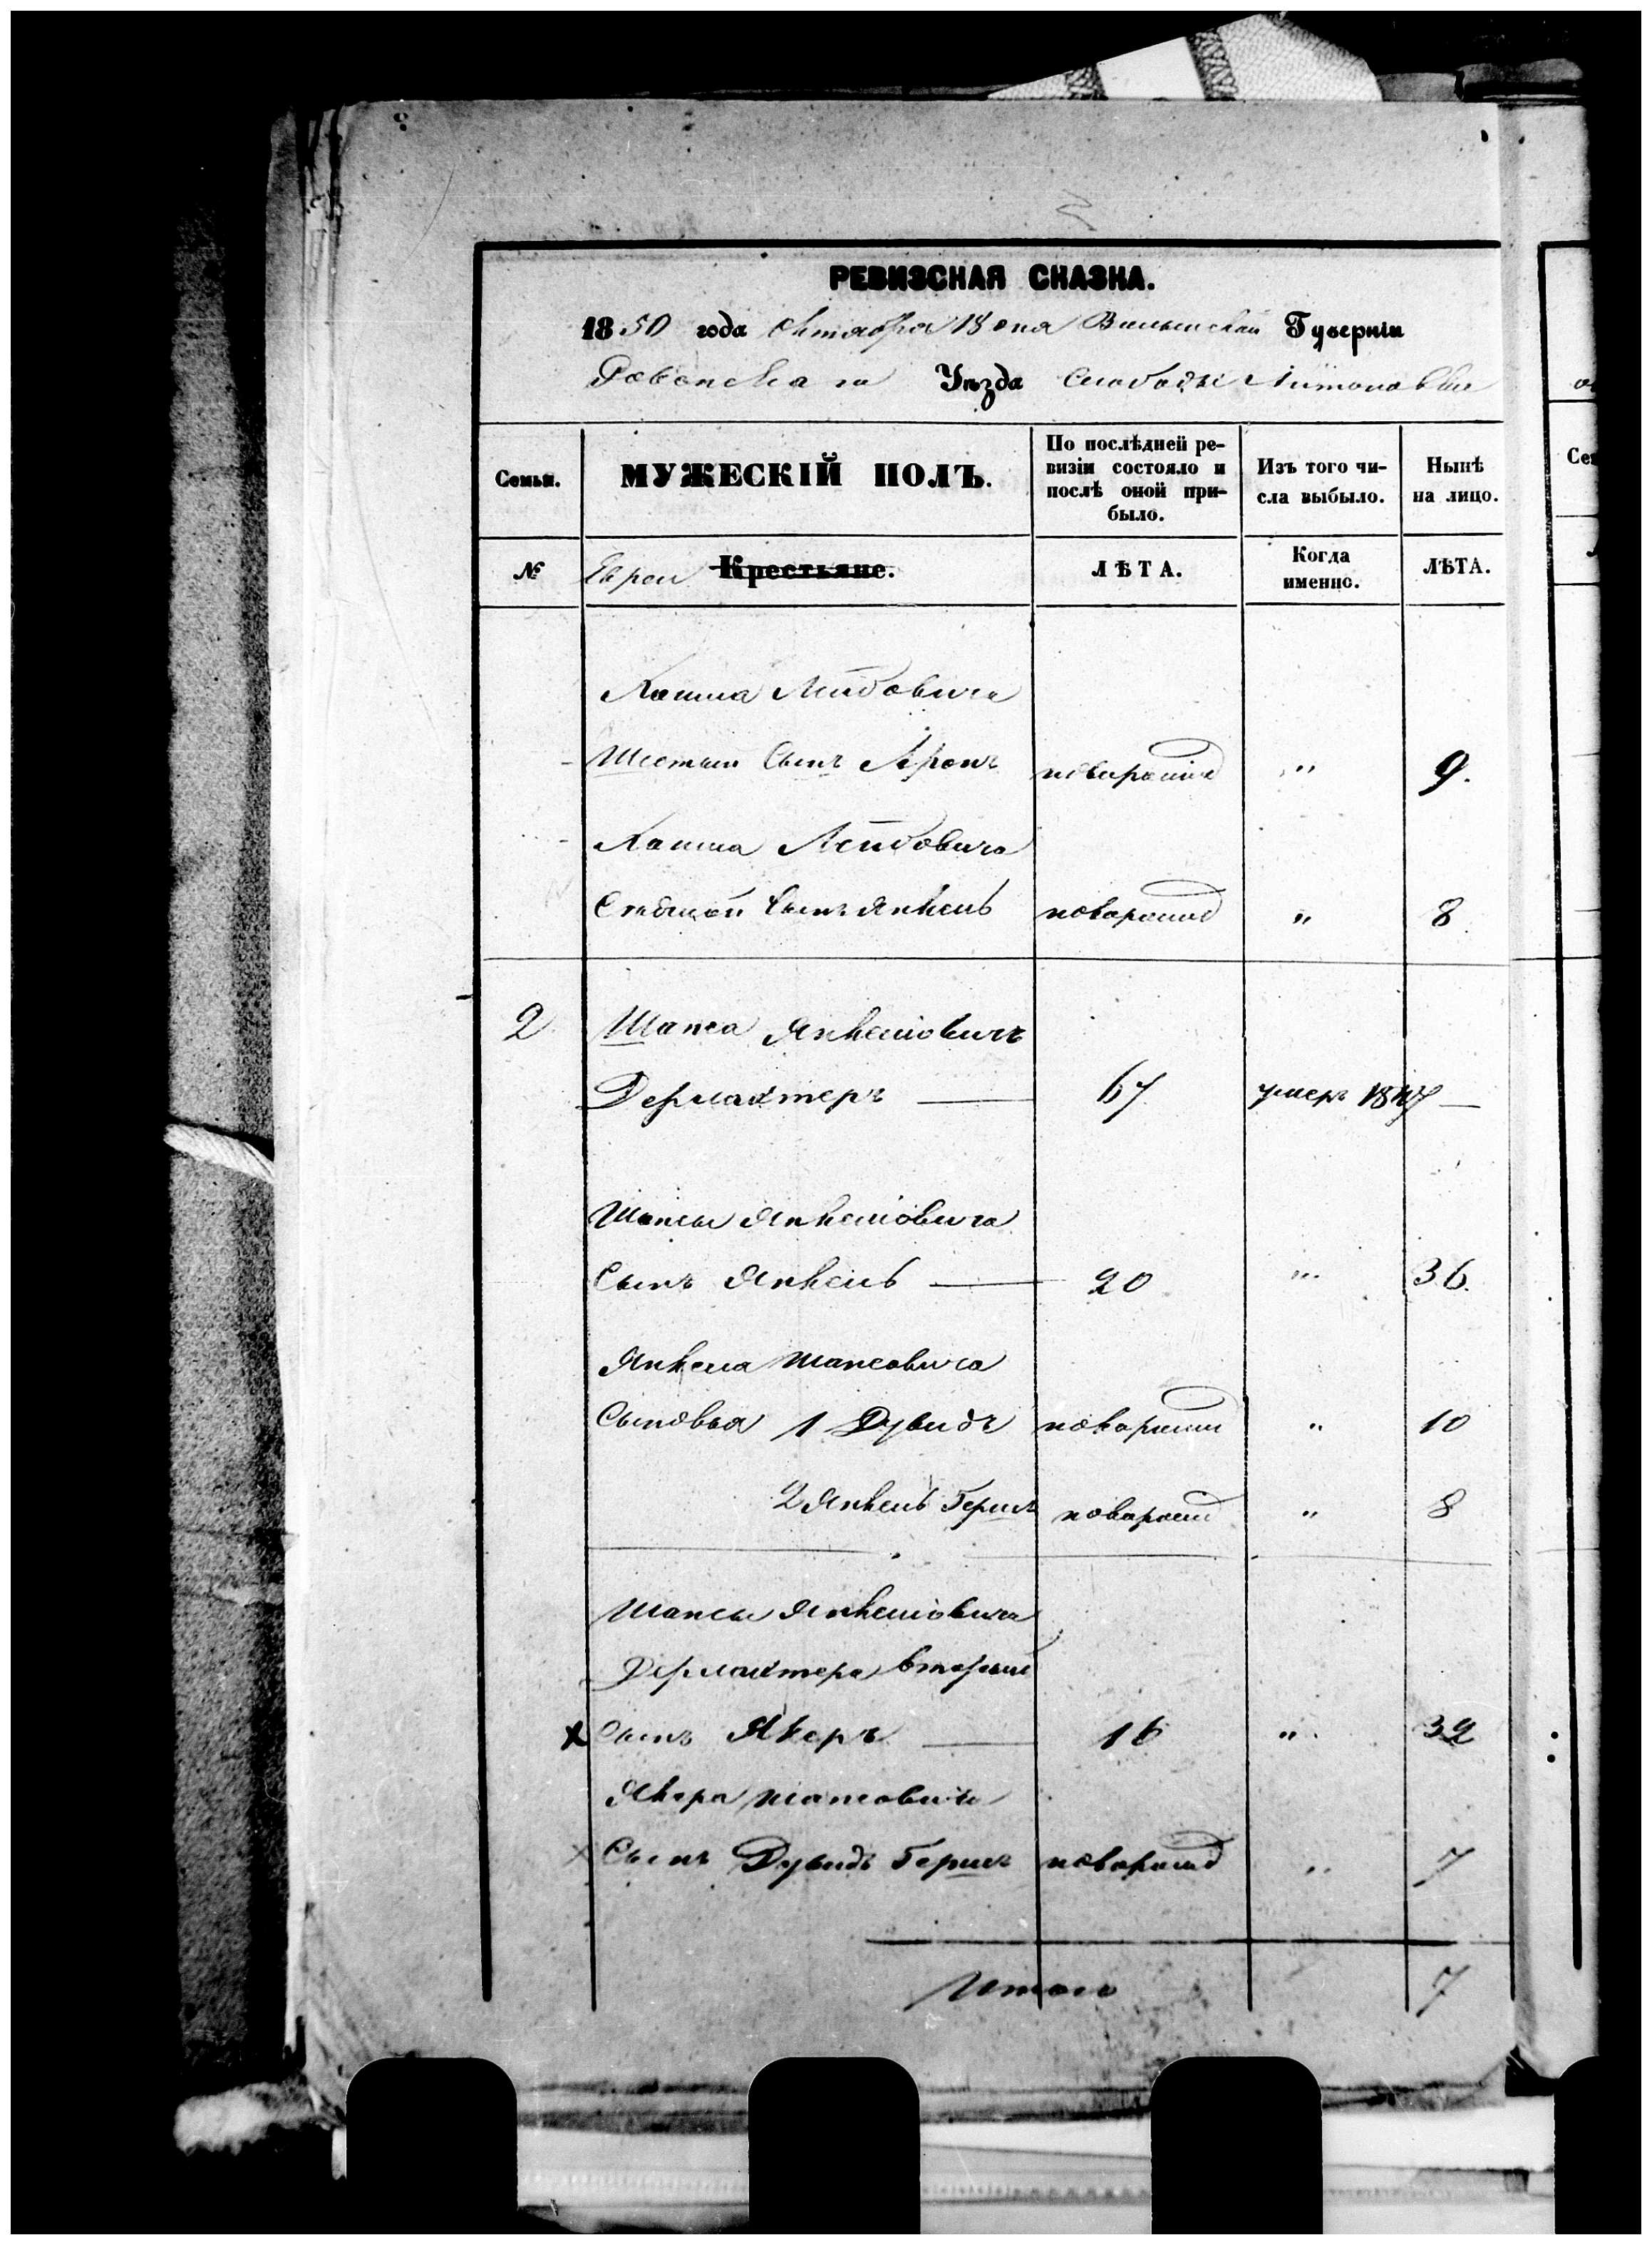 РЕВИЗСНАЯ СКАЗКА.
1850 года Октября 18 дня Волынской Губерніи
Ровенскаго Уѣзда Слободы
Семьи.
МУЖЕСКІЙ ПОЛЪ.
По послѣдней ре-
визіи состояло и
послѣ оной при-
было.
Изъ того чи-
сла выбыло.
Нынѣ
на лицо.
№ Евреи Крестьяне. ЛѢТА. Когда
именно. ЛѢТА.
Лейбовича
Шестый Сынъ Аронъ новорожд " 9.
Лейбовича
Седьмой Сынъ Янкель новорожд " 8
2 Шапса Янкеліовичъ
Дерлахтеръ — 67 умеръ 1847 —
Шапсы Янкеліовича
Сынъ Янкель — 20 " 36.
Янкеля Шапсовича
Сыновья 1 Дувидъ новорожд " 10
2 Янкель Гершъ новорожд " 8
Шапсы Янкеліовича
Дерлахтера вторый
Сынъ Якеръ — 16 " 32
Якера Шапсовича
Сынъ Дувидъ Гершъ новорожд " 7
Итого 7